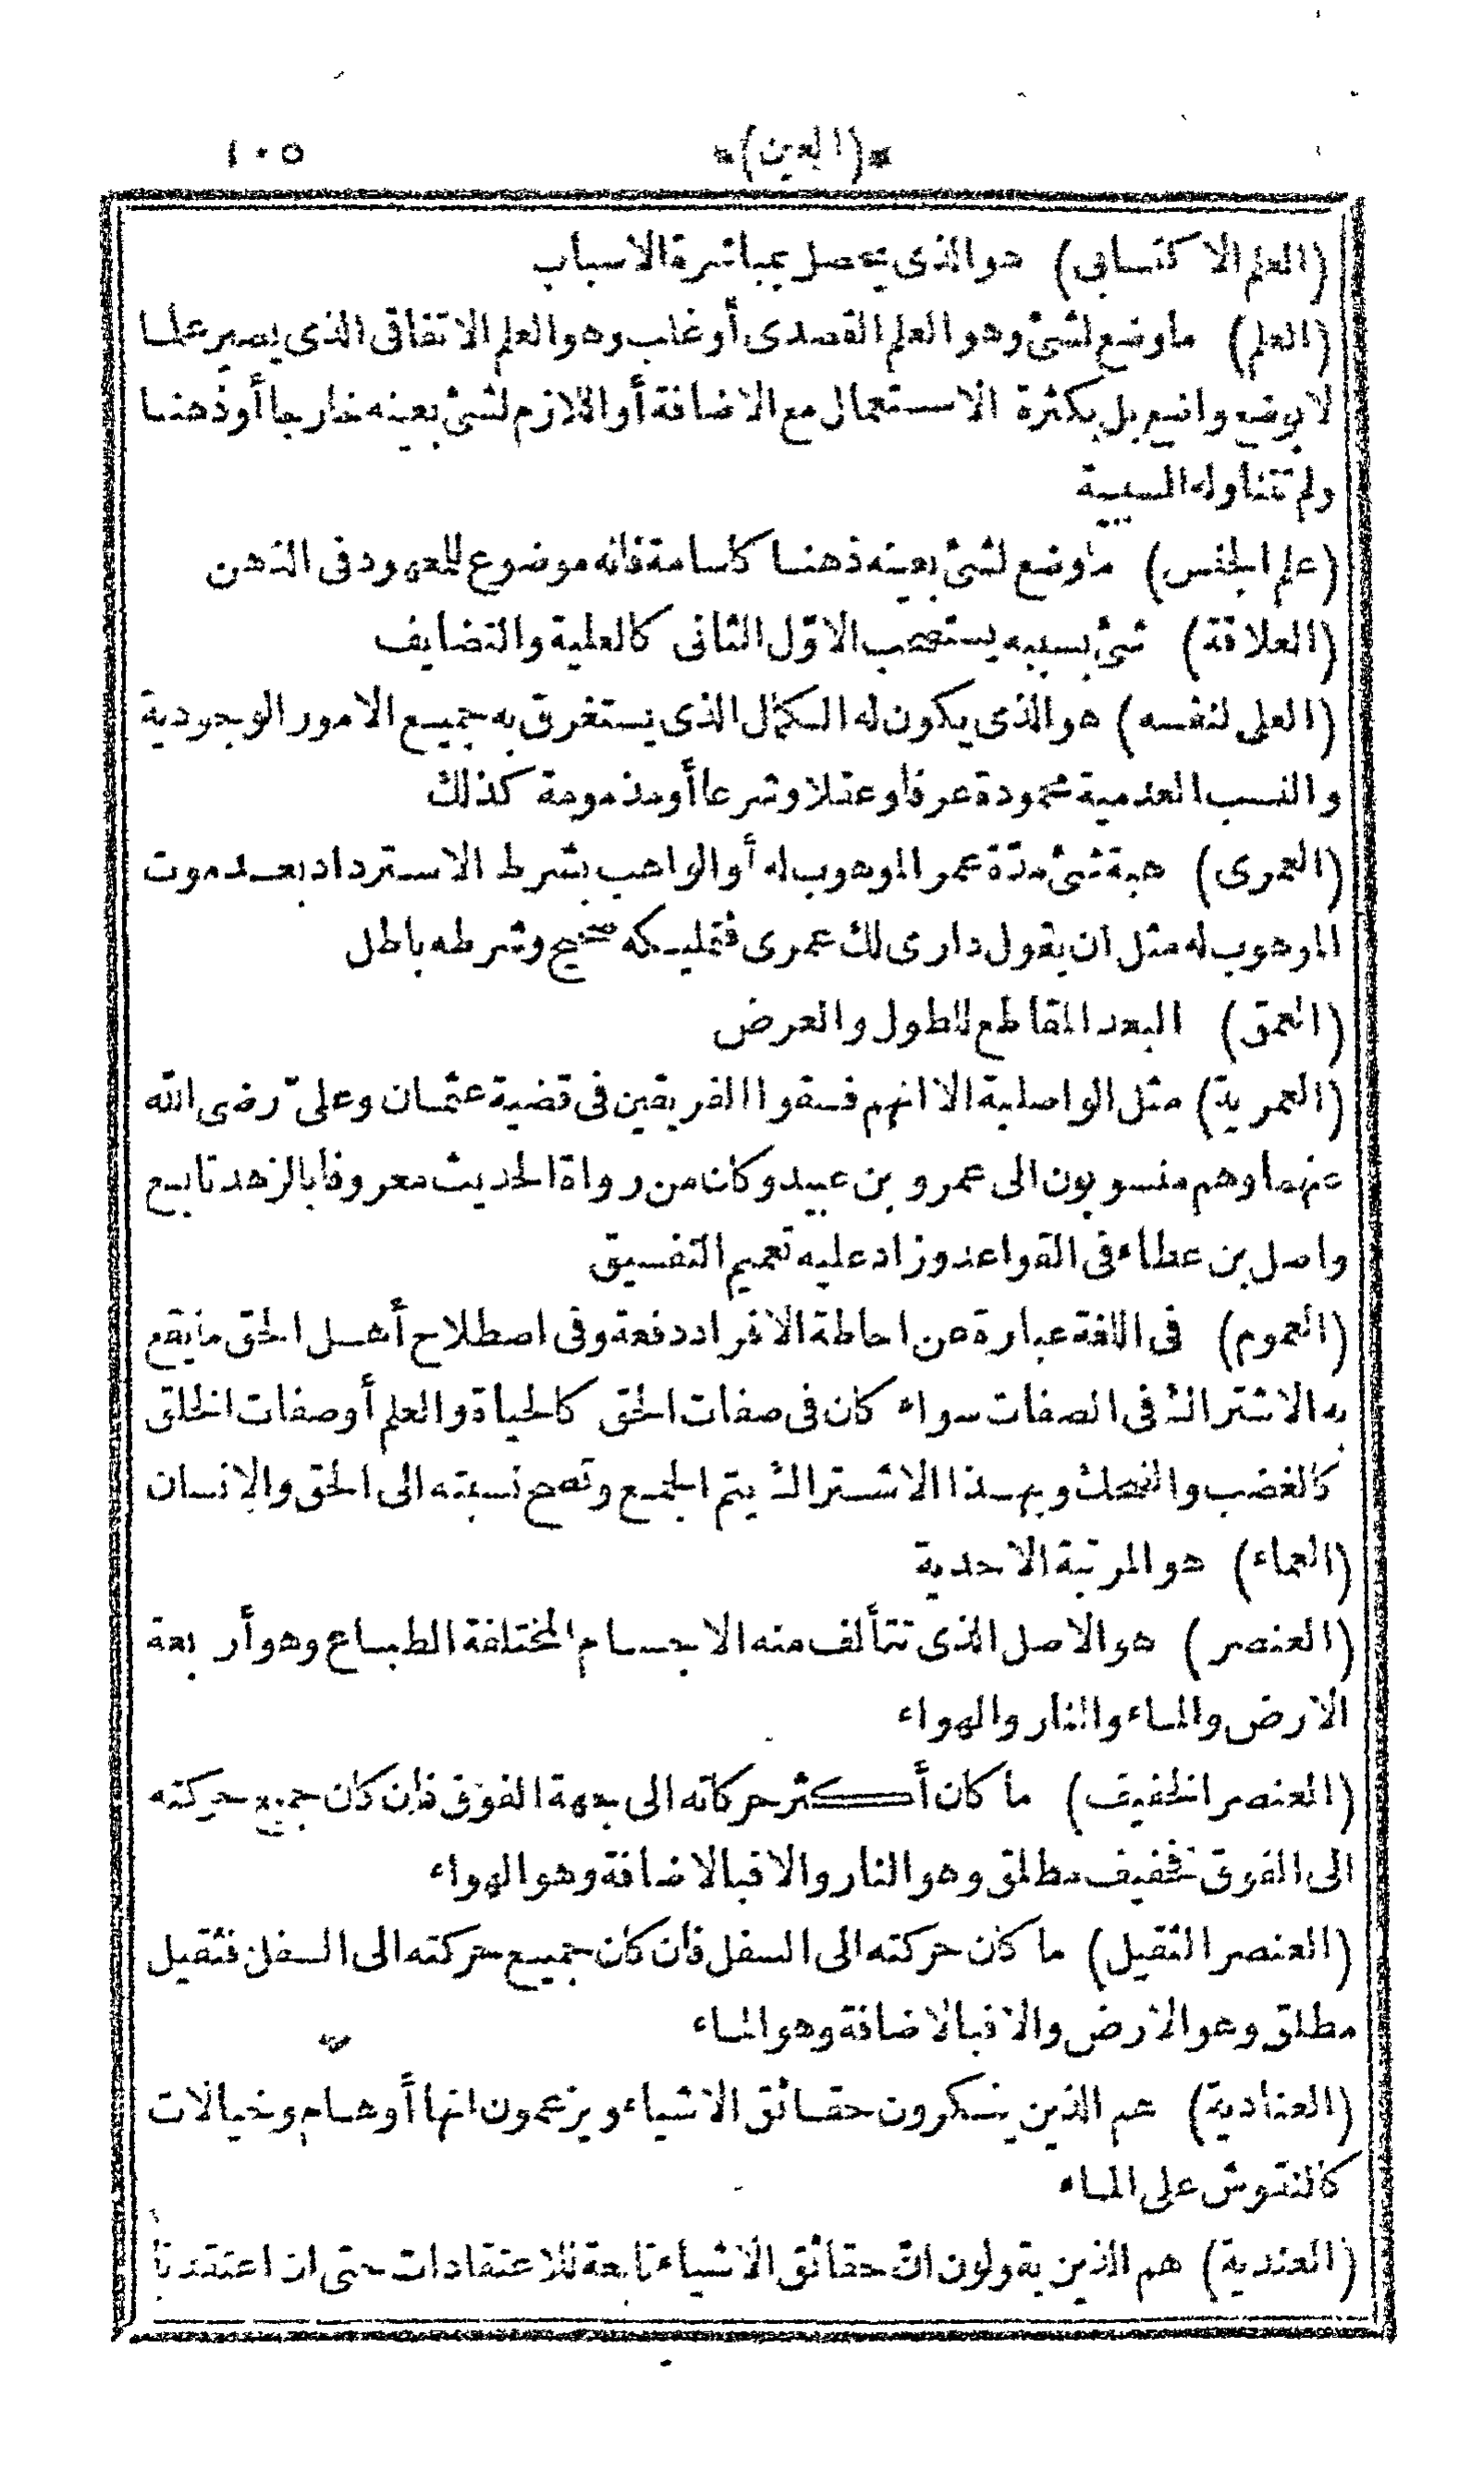 *(العين)* ١٠٥
(العلم الاكتسابى) هو الذى يحصل بمباشرة الاسباب
(العلم) ماوضع لشئ وهو العلم القصدى أوغلب وهو العلم الاتفاقى الذى يصير علما
لا بوضع واضع بل بكثرة الاستعمال مع الاضافة أو اللازم لشئ بعينه خارجا أوذهنا
ولم تتناوله السببية
(علم الجنس) ماوضع لشئ بعينه ذهنا كاسامة فانه موضوع للمعهود فى الذهن
(العلاقة) شئ بسببه يستصحب الاوّل الثانى كالعلية والتضايف
(العلى لنفسه) هو الذى يكون له الكمال الذى يستغرق به جميع الامور الوجودية
والنسب العدمية محمودة عرفا وعقلا وشرعا أومذمومة كذلك
(العمرى) هبة شئ مدّة عمر الموهوب له أو الواهب بشرط الاسترداد بعد موت
الموهوب له مثل ان يقول دارى لك عمرى فتمليكه صحيح وشرطه باطل
(العمق) البعد المقاطع للطول والعرض
(العمرية) مثل الواصلية الا انهم فسقوا الفريقين فى قضية عثمان وعلىّ رضى الله
عنهما وهم منسوبون الى عمرو بن عبيد وكان من رواة الحديث معروفا بالزهد تابع
واصل بن عطاء فى القواعد وزاد عليه تعميم التفسيق
(العموم) فى اللغة عبارة عن احاطة الافراد دفعة وفى اصطلاح أهل الحق مايقع
به الاشتراك فى الصفات سواء كان فى صفات الحق كالحياة والعلم أوصفات الخلق
كالغضب والضحك وبهذا الاشتراك يتم الجمع وتصح نسبته الى الحق والانسان
(العماء) هو المرتبة الاحدية
(العنصر) هو الاصل الذى تتألف منه الاجسام المختلفة الطباع وهو أربعة
الارض والماء والنار والهواء
(العنصر الخفيف) ما كان أكثر حركاته الى جهة الفوق فان كان جميع حركته
الى الفوق فخفيف مطلق وهو النار والا فبالاضافة وهو الهواء
(العنصر الثقيل) ما كان حركته الى السفل فان كان جميع حركته الى السفل فثقيل
مطلق وهو الارض والا فبالاضافة وهو الماء
(العنادية) هم الذين ينكرون حقائق الاشياء ويزعمون انها أوهام وخيالات
كالنقوش على الماء
(العندية) هم الذين يقولون انّ حقائق الاشياء تابعة للاعتقادات حتى ان اعتقدنا